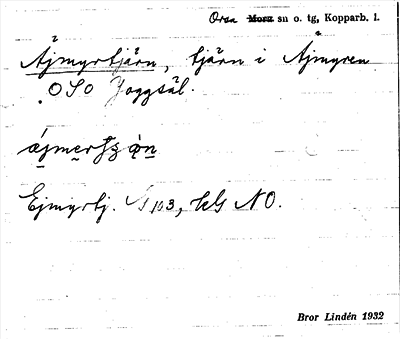 Orsa Mora sn o. tg, Kopparb. l.
Åjmyrtjärn, tjärn i Åjmyren
OSO Joggsäl.
Ejmyrtj. 103, kls NO.
Bror Lindén 1932